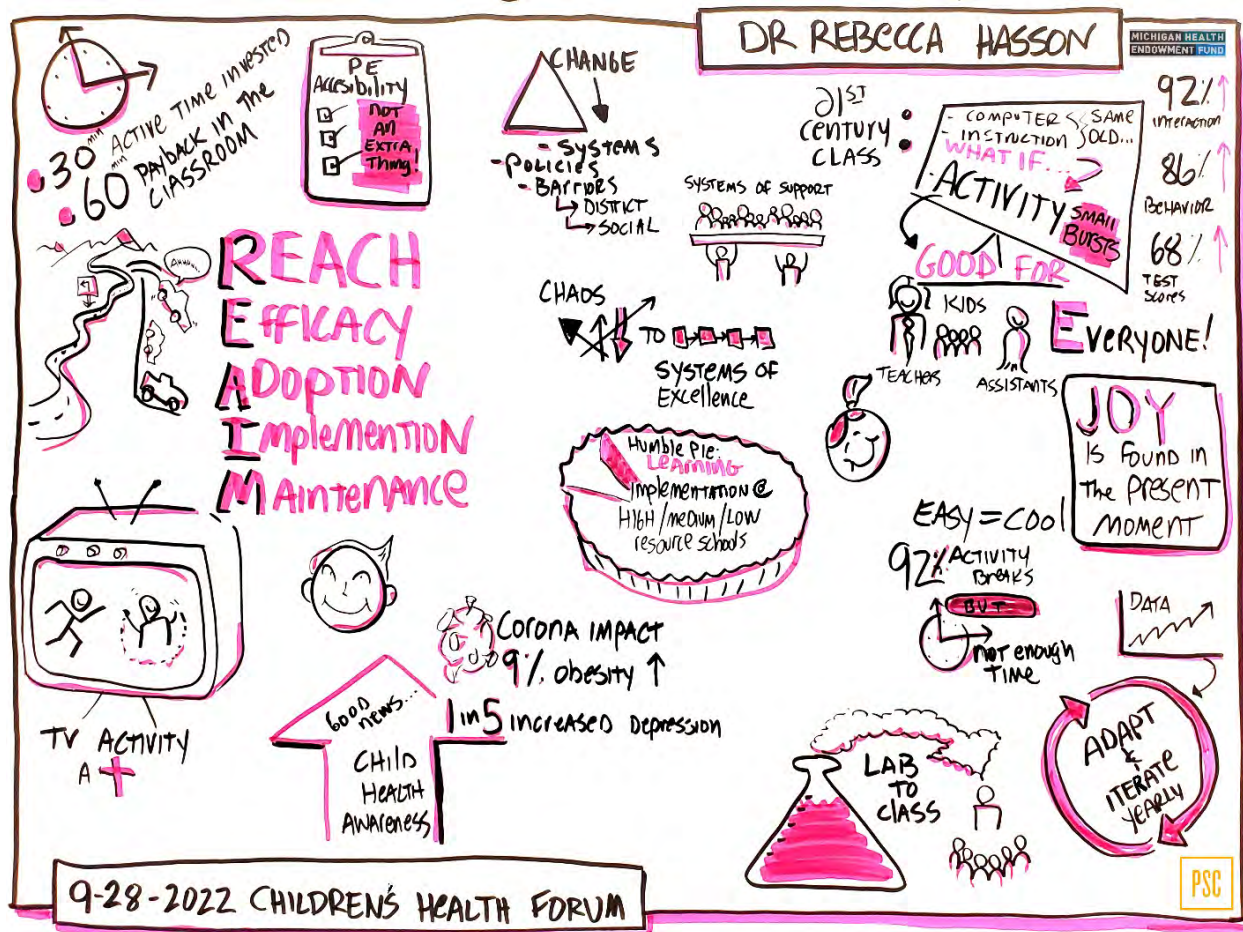 DR REBECCA HASSON
MICHIGAN HEALTH
ENDOWMENT FUND
30 min ACTIVE TIME INVESTED
60 min PAYBACK IN THE
CLASSROOM
PE
ACCESIBILITY
NOT
AN
EXTRA
THING!
CHANGE
- SYSTEMS
- POLICIES
- BARRIORS
DISTRICT
SOCIAL
SYSTEMS OF SUPPORT
21ST
CENTURY
CLASS
- COMPUTER
- INSTRUCTION
SAME
OLD...
WHAT IF...
- ACTIVITY
SMALL
BURSTS
GOOD FOR
KIDS
TEACHERS
ASSISTANTS
EVERYONE!
92%
INTERACTION
86%
BEHAVIOR
68%
TEST
SCORES
AHHHH...
REACH
EFFICACY
ADOPTION
IMPLEMENTION
MAINTENANCE
CHAOS
TO
SYSTEMS OF
EXCELLENCE
HUMBLE PIE:
LEARNING
IMPLEMENTATION @
HIGH/MEDIUM/LOW
RESOURCE SCHOOLS
JOY
IS FOUND IN
THE PRESENT
MOMENT
EASY = COOL
92% ACTIVITY
BREAKS
BUT
NOT ENOUGH
TIME
DATA
ADAPT
&
ITERATE
YEARLY
TV ACTIVITY
A+
CORONA IMPACT
9% OBESITY ↑
1 IN 5 INCREASED DEPRESSION
GOOD
NEWS...
CHILD
HEALTH
AWARENESS
LAB
TO
CLASS
9-28-2022 CHILDREN'S HEALTH FORUM
PSC